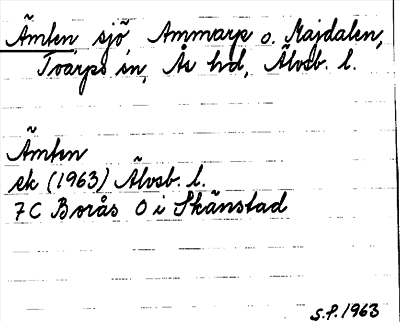 Ämten, sjö, Ammarp o. Majdalen,
Tvarps sn, Ås hd, Älvsb. l.
Ämten
ek (1963) Älvsb. l.
7C Borås O i Skänstad
S.P. 1963